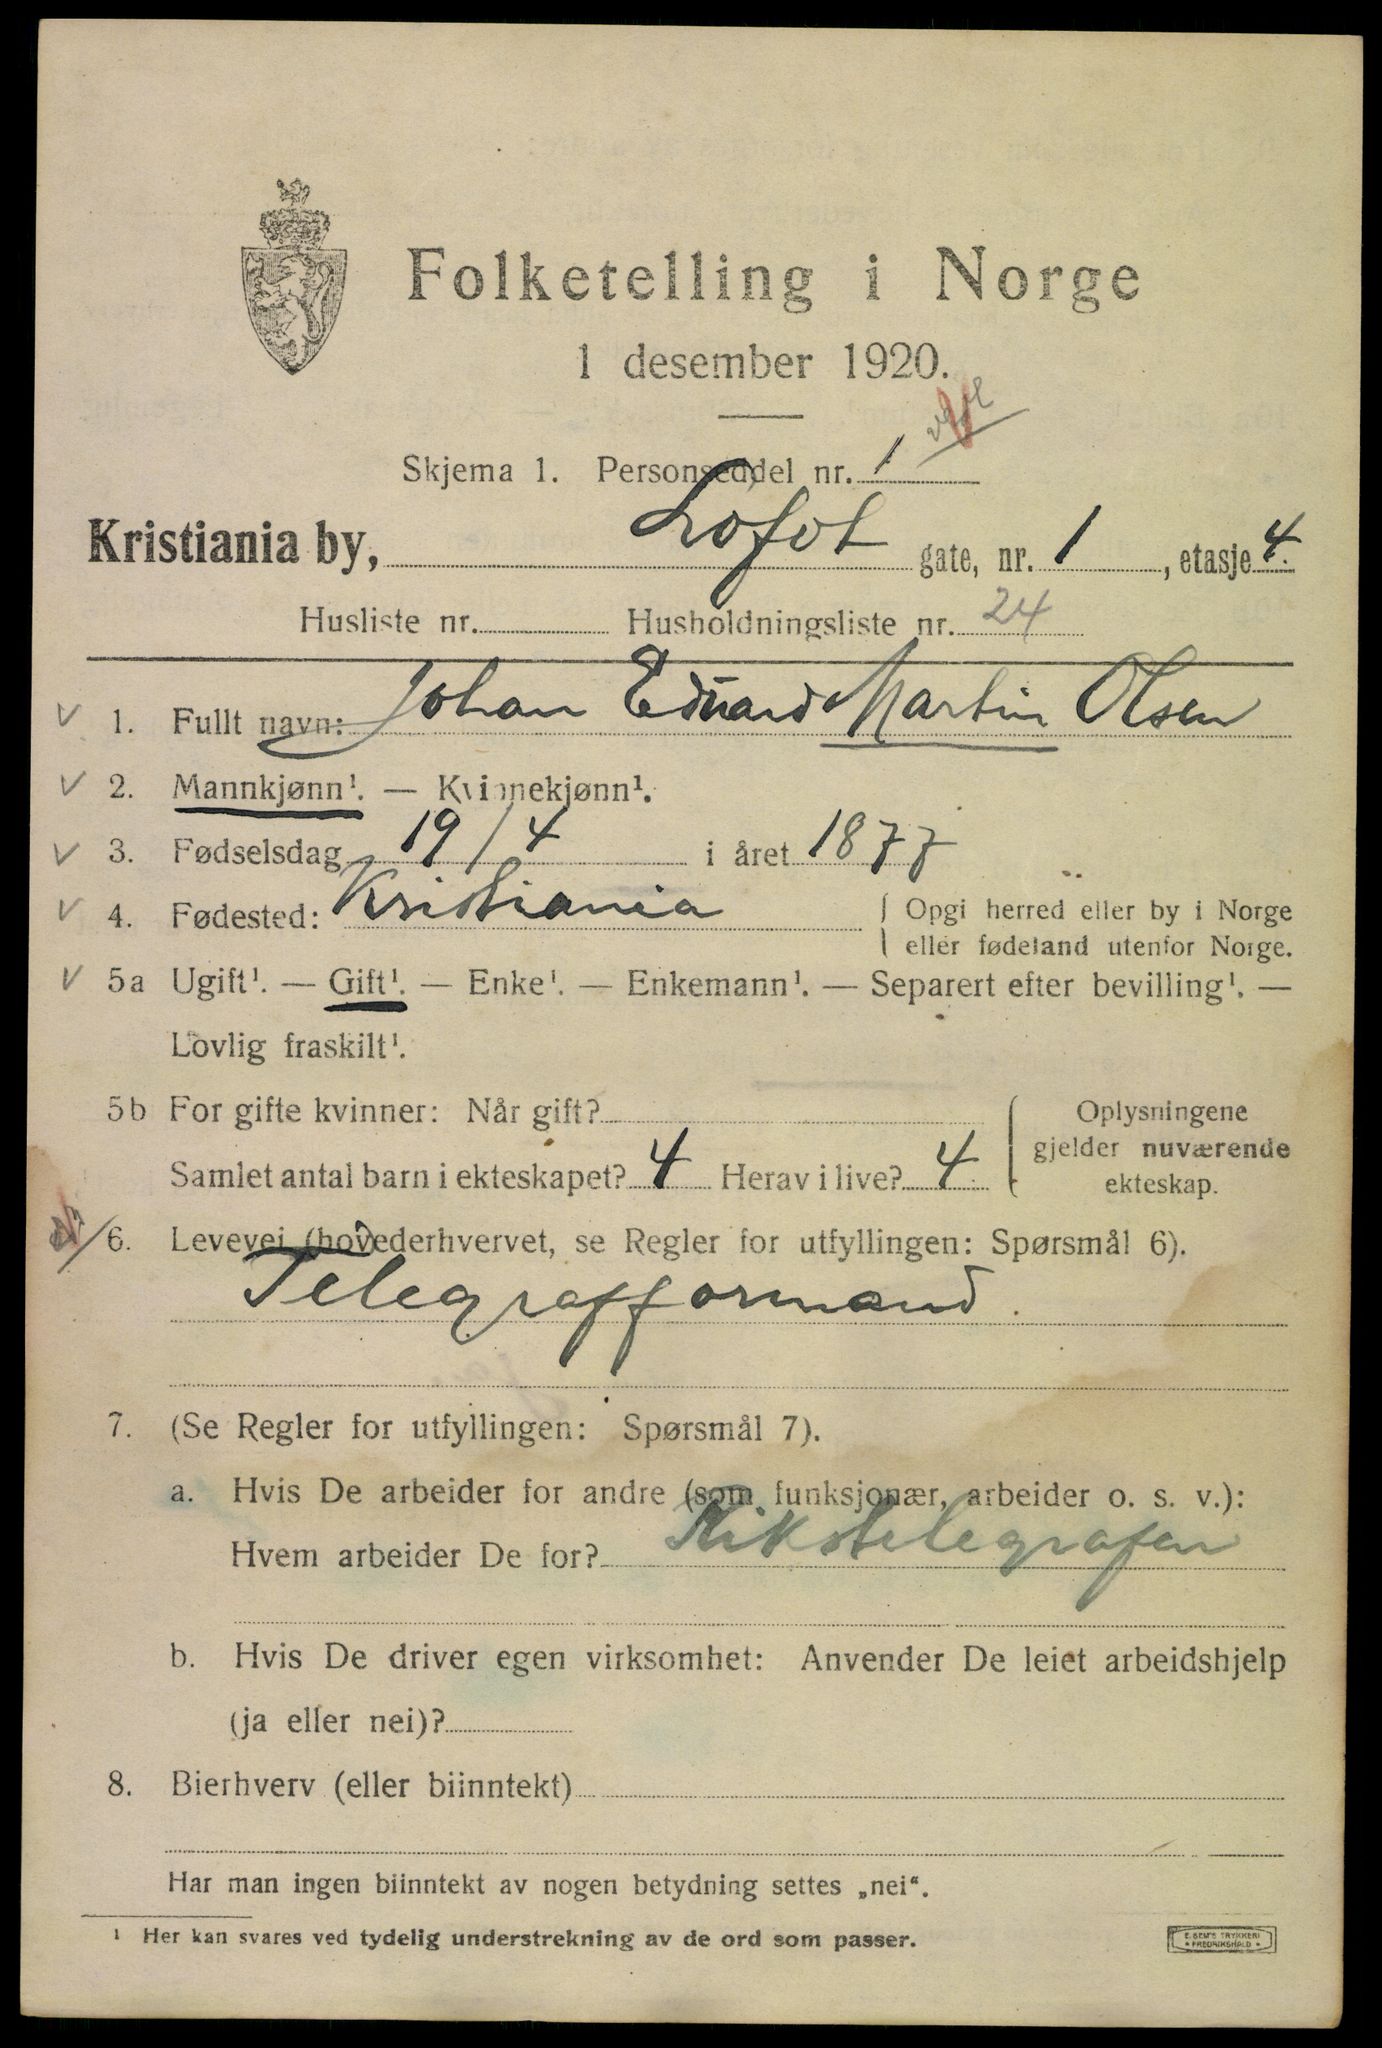 Folketelling i Norge
1 desember 1920.
Skjema 1. Personseddel nr. 1
Kristiania by, Lofot gate, nr. 1, etasje 4.
Husliste nr. Husholdningsliste nr. 24
1. Fullt navn: Johan Eduard Martin Olsen
2. Mannkjønn¹. — Kvinnekjønn¹.
3. Fødselsdag 19/4 i året 1877
4. Fødested: Kristiania { Opgi herred eller by i Norge
eller fødeland utenfor Norge.
5a Ugift¹. — Gift¹. — Enke¹. — Enkemann¹. — Separert efter bevilling¹. —
Lovlig fraskilt¹.
5b For gifte kvinner: Når gift?
Samlet antal barn i ekteskapet? 4 Herav i live? 4
Oplysningene
gjelder nuværende
ekteskap.
6. Levevei (hovederhvervet, se Regler for utfyllingen: Spørsmål 6).
Telegrafformand.
7. (Se Regler for utfyllingen: Spørsmål 7).
a. Hvis De arbeider for andre (som funksjonær, arbeider o. s. v.):
Hvem arbeider De for? Rikstelegrafen
b. Hvis De driver egen virksomhet: Anvender De leiet arbeidshjelp
(ja eller nei)?
8. Bierhverv (eller biinntekt)
Har man ingen biinntekt av nogen betydning settes „nei“.
¹ Her kan svares ved tydelig understrekning av de ord som passer.
E. SEM'S TRYKKERI
• FREDRIKSHALD •